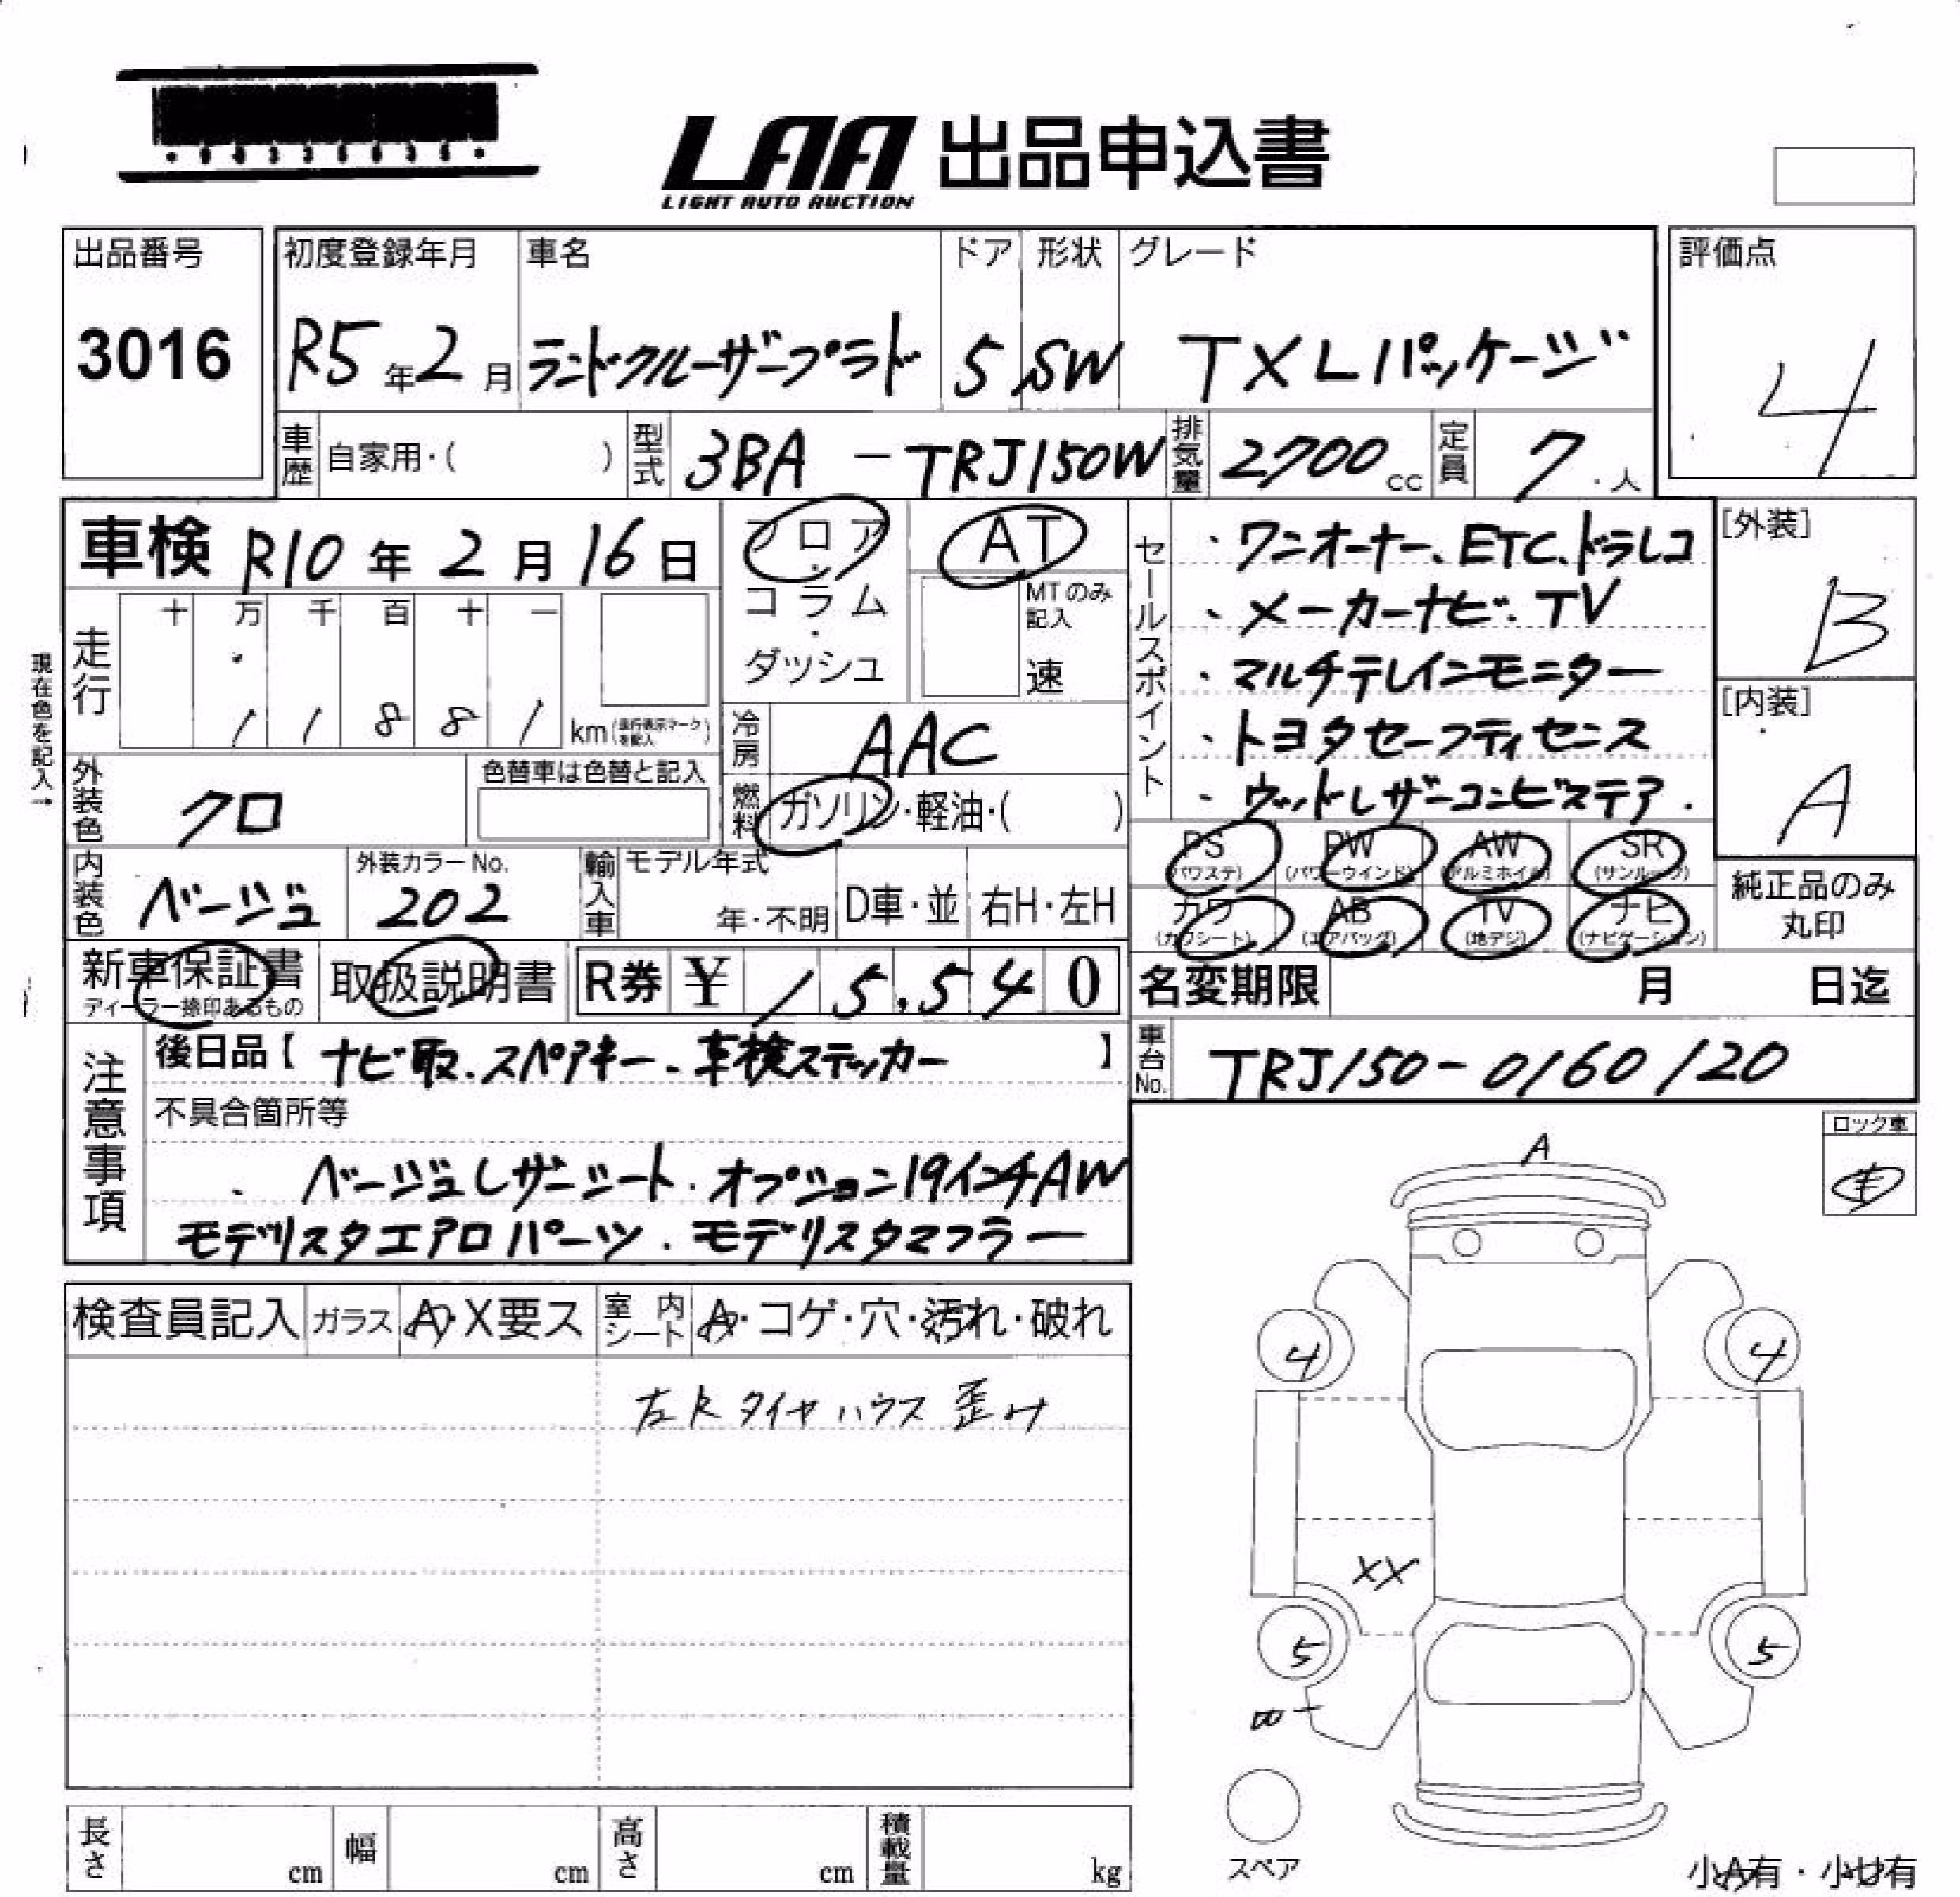 LAA 出品申込書
LIGHT AUTO AUCTION
出品番号
3016
初度登録年月
R5年2月
車名
ランドクルーザープラド
ドア
5
形状
SW
グレード
TX Lパッケージ
評価点
4
車歴
自家用・( )
型式
3BA - TRJ150W
排気量
2700cc
定員
7・人
車検 R10年2月16日
フロア・コラム・ダッシュ
AT
MTのみ記入
速
セールスポイント
・ワンオーナー、ETC、ドラレコ
・メーカーナビ・TV
・マルチテレインモニター
・トヨタセーフティセンス
・ウッドレザーコンビステア.
[外装]
B
[内装]
A
現在色を記入→
走行
十 万 千 百 十 一
1 1 8 8 1
km(走行表示マークを記入)
冷房
AAC
燃料
ガソリン・軽油・( )
外装色
クロ
色替車は色替と記入
内装色
ベージュ
外装カラーNo.
202
輸入車
モデル年式
年・不明
D車・並
右H・左H
PS (パワステ)
PW (パワーウインド)
AW (アルミホイル)
SR (サンルーフ)
カワ (カワシート)
AB (エアバッグ)
TV (地デジ)
ナビ (ナビゲーション)
純正品のみ
丸印
新車保証書
ディーラー捺印あるもの
取扱説明書
R券 ¥ 15,540
名変期限 月 日迄
注意事項
後日品【ナビ取、スペアキー、車検ステッカー】
車台No.
TRJ150-0160120
不具合箇所等
・ベージュレザーシート・オプション19インチAW
モデリスタエアロパーツ・モデリスタマフラー
ロック車
A
検査員記入
ガラス
A・X要ス
室内シート
A・コゲ・穴・汚れ・破れ
左Rタイヤハウス歪み
4
4
XX
5
5
スペア
長さ cm
幅 cm
高さ cm
積載量 kg
小A有・小U有